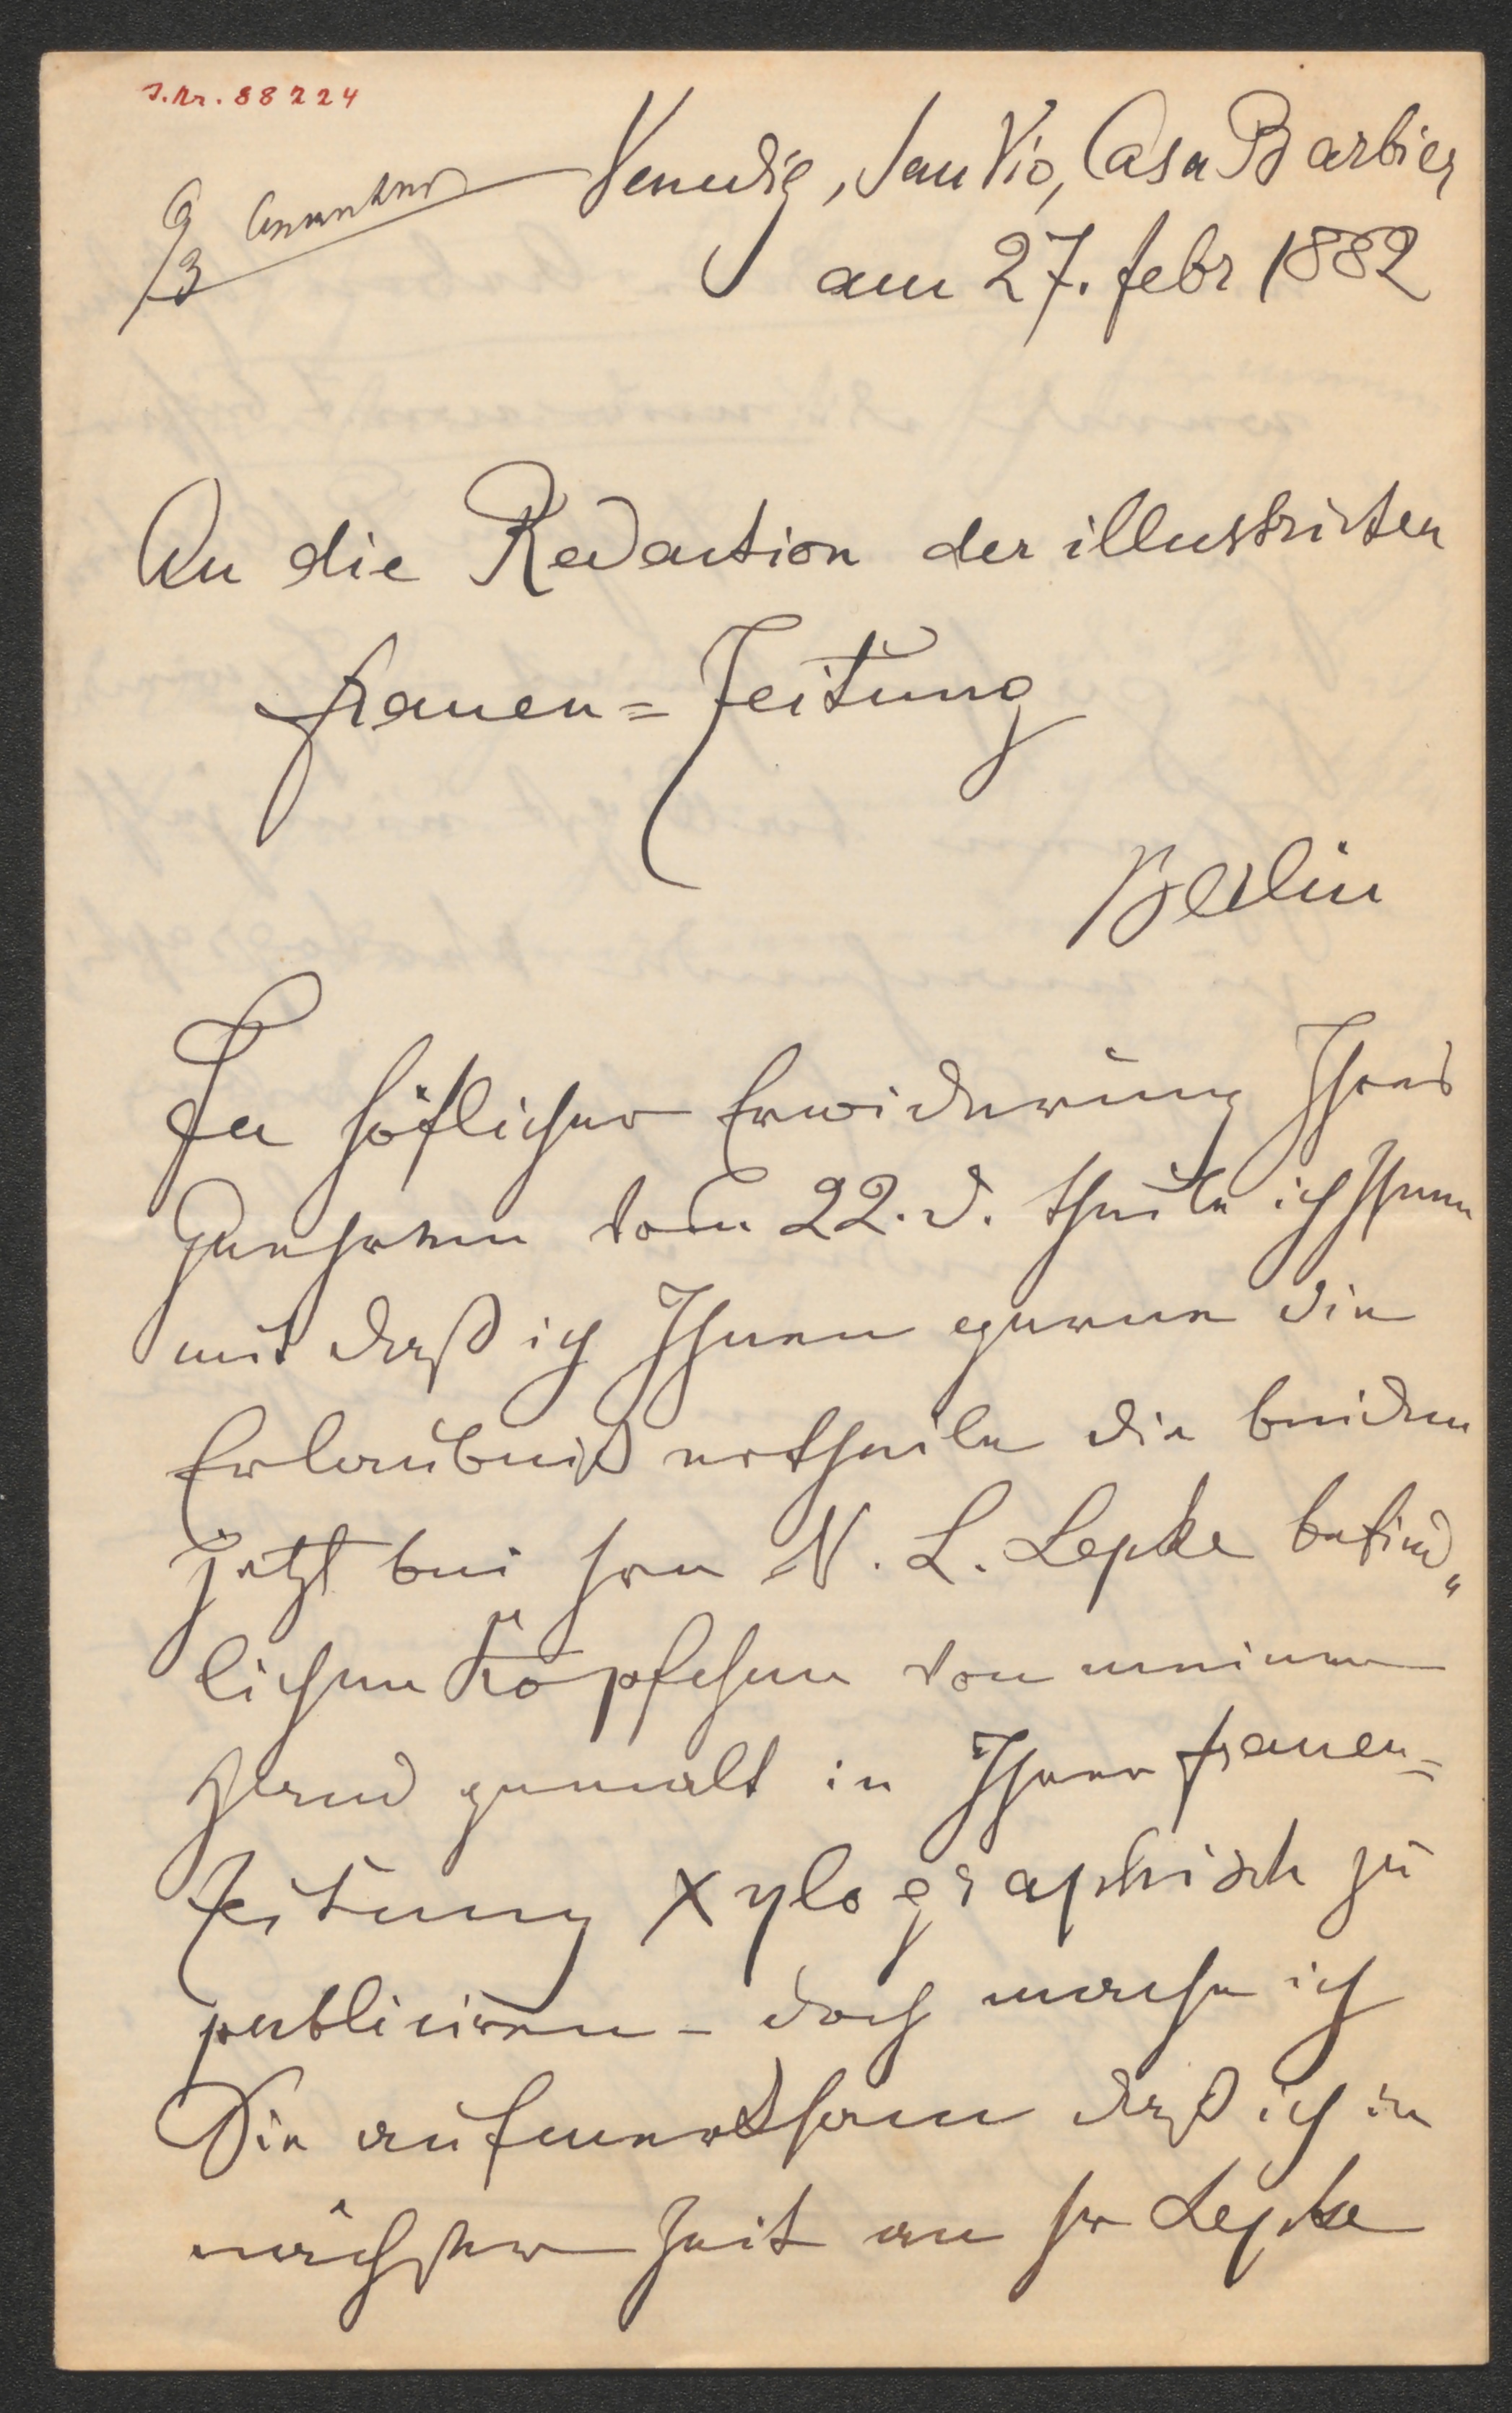 J. Nr. 88224
Venedig, San Vio, Casa Barbier
9/3
am 27. febr 1882
An die Redaction der illustrirten
Frauen=Zeitung
Berlin
In höflicher Erwiderung Ihres
Geehrten vom 22. d. theile ich Ihnen
mit daß ich Ihnen gerne die
Erlaubniß ertheile die beiden
jetzt bei Hrn N. L. Lepke befind„
lichen Köpfchen von meiner
Hand gemalt in Ihrer Frauen=
Zeitung xylographisch zu
publiciren – doch mache ich
Sie aufmerksam daß ich in
nächster Zeit an Hr Lepke